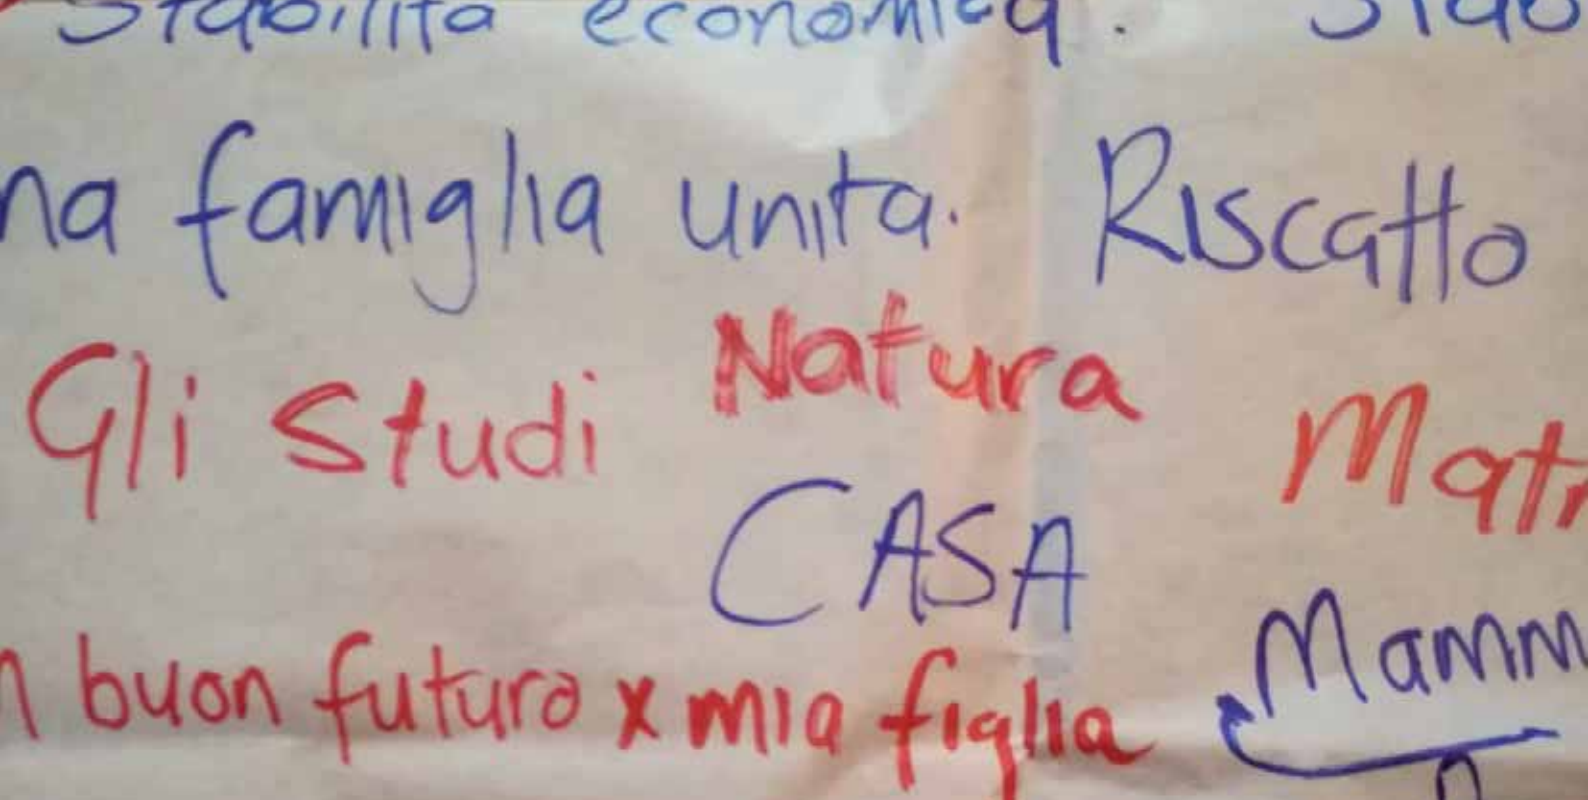 Stabilità economica.
na famiglia unita. Riscatto
Gli studi Natura
CASA
buon futuro x mia figlia